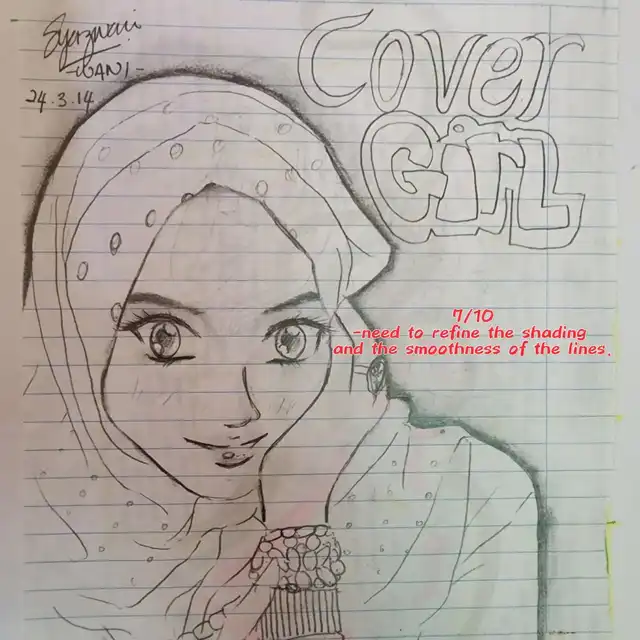 Syazwani
-WANI-
24.3.14
Cover
GirL
7/10
-need to refine the shading
and the smoothness of the lines.